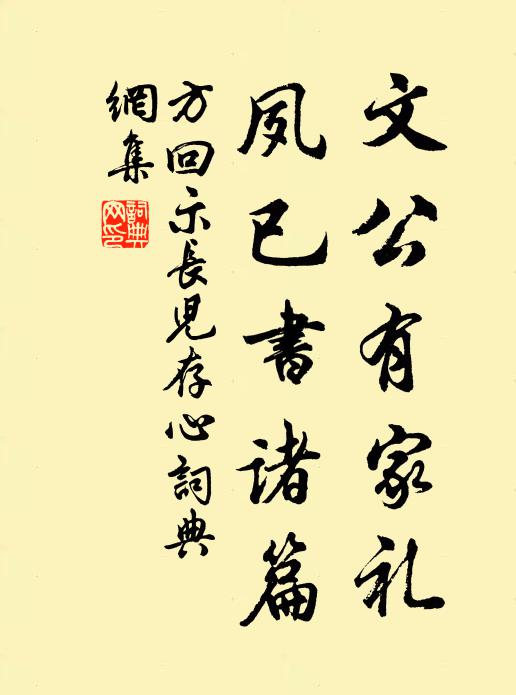 文公有家礼
夙已書诸篇
方回示長児存心詞典
網集
詞典網印